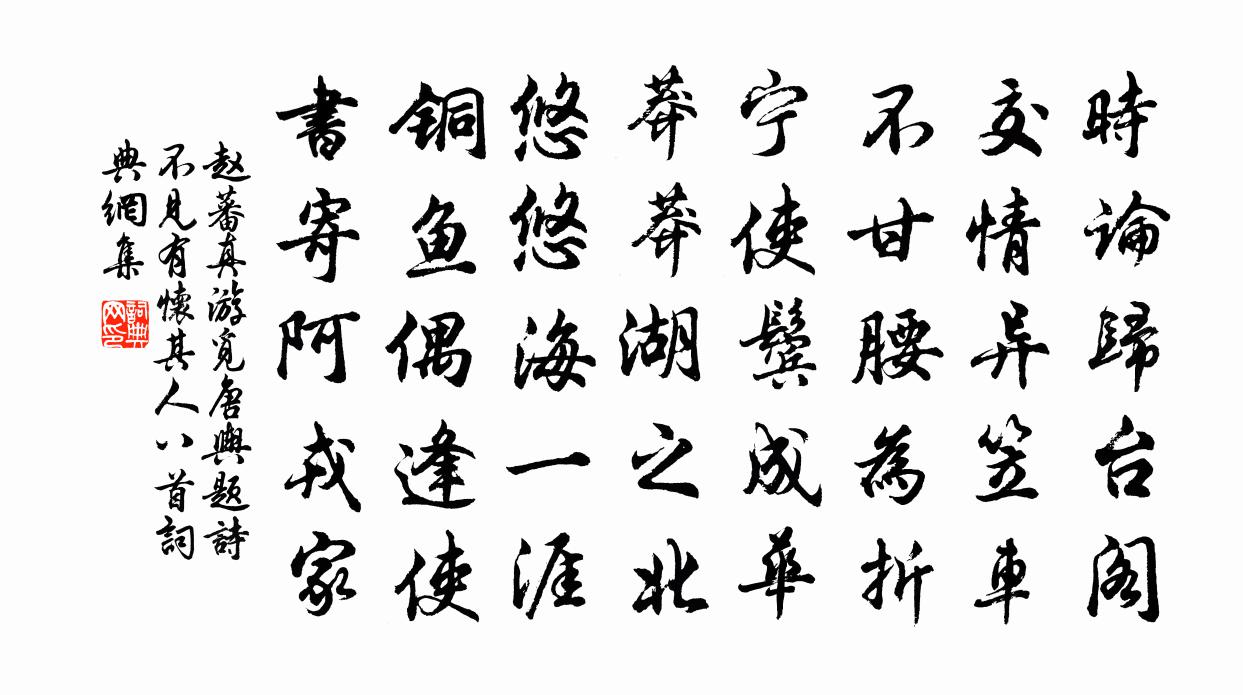 時論歸台阁
交情异笠車
不甘腰為折
宁使鬓成華
莽莽湖之北
悠悠海一涯
铜鱼偶逢使
書寄阿戎家
赵蕃真游覓唐興題詩
不見有懷其人八首詞
典網集
詞典网印